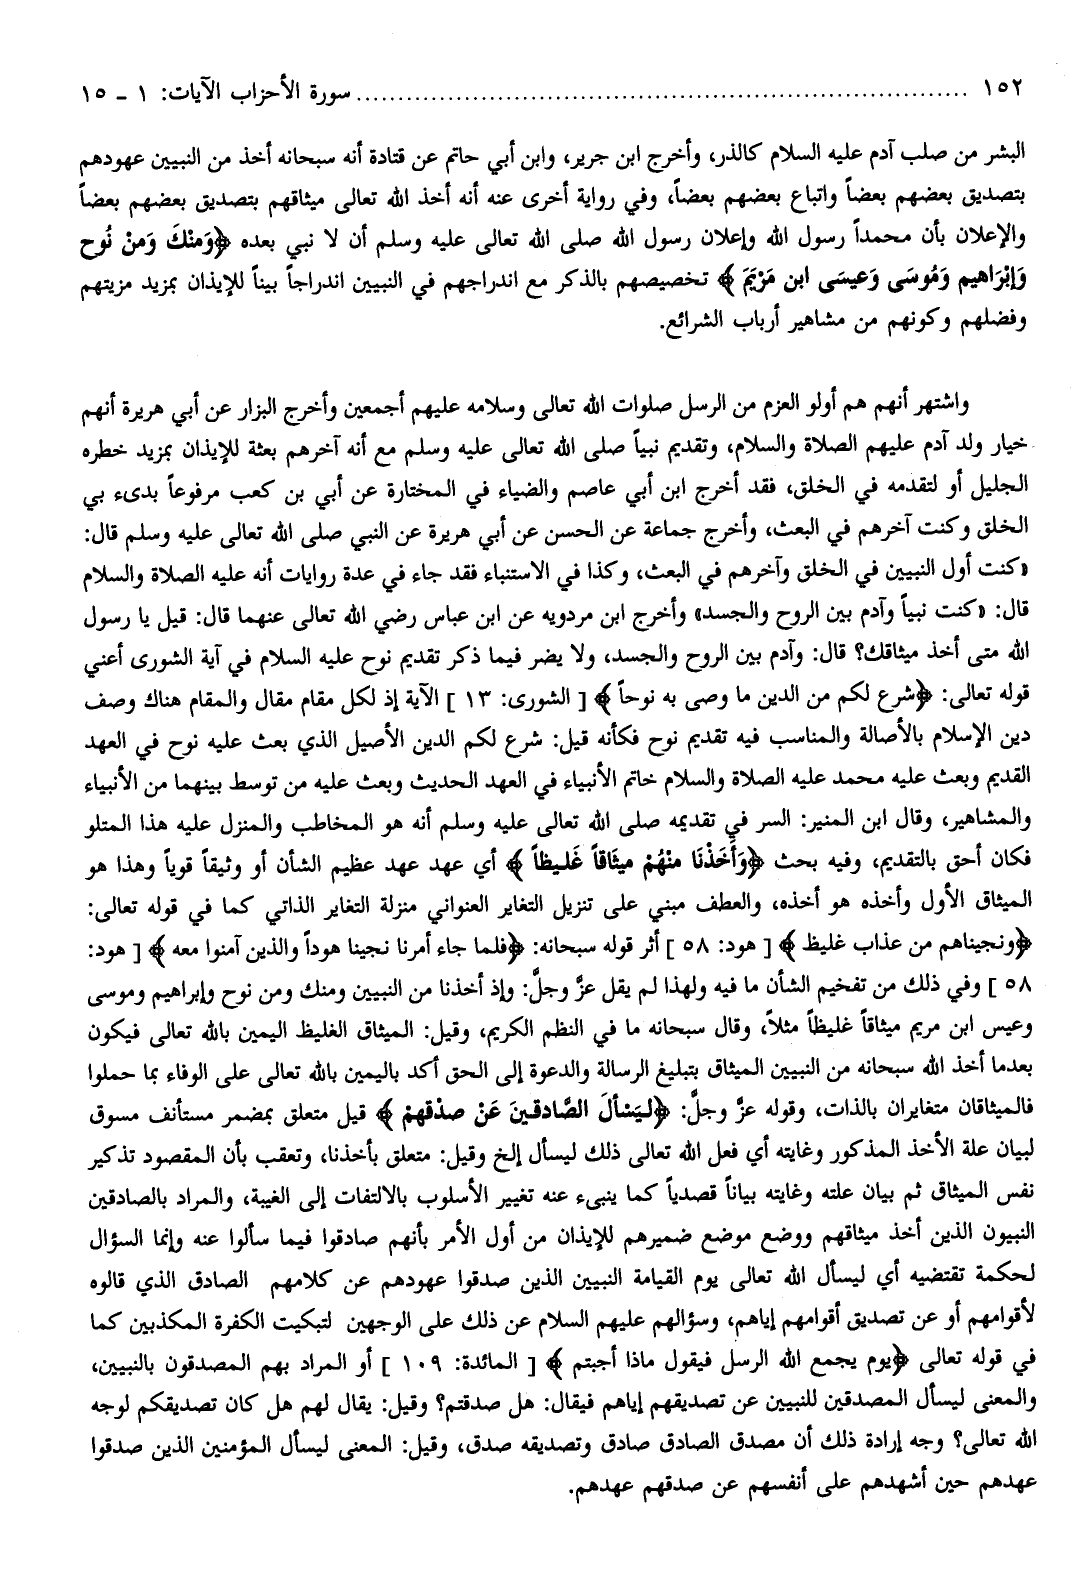 ١٥٢ ........................................................................... سورة الأحزاب الآيات: ١ - ١٥
البشر من صلب آدم عليه السلام كالذر، وأخرج ابن جرير، وابن أبي حاتم عن قتادة أنه سبحانه أخذ من النبيين عهودهم
بتصديق بعضهم بعضاً واتباع بعضهم بعضاً، وفي رواية أخرى عنه أنه أخذ الله تعالى ميثاقهم بتصديق بعضهم بعضاً
والإعلان بأن محمداً رسول الله وإعلان رسول الله صلى الله تعالى عليه وسلم أن لا نبي بعده ﴿وَمنْكَ وَمنْ نُوح
وَإبْرَاهيم وَمُوسَى وَعيسَى ابن مَرْيَمَ﴾ تخصيصهم بالذكر مع اندراجهم في النبيين اندراجاً بيناً للإيذان بمزيد مزيتهم
وفضلهم وكونهم من مشاهير أرباب الشرائع.
واشتهر أنهم هم أولو العزم من الرسل صلوات الله تعالى وسلامه عليهم أجمعين وأخرج البزار عن أبي هريرة أنهم
خيار ولد آدم عليهم الصلاة والسلام، وتقديم نبياً صلى الله تعالى عليه وسلم مع أنه آخرهم بعثة للإيذان بمزيد خطره
الجليل أو لتقدمه في الخلق، فقد أخرج ابن أبي عاصم والضياء في المختارة عن أبي بن كعب مرفوعاً بدىء بي
الخلق وكنت آخرهم في البعث، وأخرج جماعة عن الحسن عن أبي هريرة عن النبي صلى الله تعالى عليه وسلم قال:
«كنت أول النبيين في الخلق وآخرهم في البعث، وكذا في الاستنباء فقد جاء في عدة روايات أنه عليه الصلاة والسلام
قال: «كنت نبياً وآدم بين الروح والجسد» وأخرج ابن مردويه عن ابن عباس رضي الله تعالى عنهما قال: قيل يا رسول
الله متى أخذ ميثاقك؟ قال: وآدم بين الروح والجسد، ولا يضر فيما ذكر تقديم نوح عليه السلام في آية الشورى أعني
قوله تعالى: ﴿شرع لكم من الدين ما وصى به نوحاً﴾ [ الشورى: ١٣ ] الآية إذ لكل مقام مقال والمقام هناك وصف
دين الإسلام بالأصالة والمناسب فيه تقديم نوح فكأنه قيل: شرع لكم الدين الأصيل الذي بعث عليه نوح في العهد
القديم وبعث عليه محمد عليه الصلاة والسلام خاتم الأنبياء في العهد الحديث وبعث عليه من توسط بينهما من الأنبياء
والمشاهير، وقال ابن المنير: السر في تقديمه صلى الله تعالى عليه وسلم أنه هو المخاطب والمنزل عليه هذا المتلو
فكان أحق بالتقديم، وفيه بحث ﴿وَأَخَذْنَا منْهُمْ ميثَاقاً غَليظاً﴾ أي عهد عهد عظيم الشأن أو وثيقاً قوياً وهذا هو
الميثاق الأول وأخذه هو أخذه، والعطف مبني على تنزيل التغاير العنواني منزلة التغاير الذاتي كما في قوله تعالى:
﴿ونجيناهم من عذاب غليظ﴾ [ هود: ٥٨ ] أثر قوله سبحانه: ﴿فلما جاء أمرنا نجينا هوداً والذين آمنوا معه﴾ [ هود:
٥٨ ] وفي ذلك من تفخيم الشأن ما فيه ولهذا لم يقل عزَّ وجلَّ: وإذ أخذنا من النبيين ومنك ومن نوح وإبراهيم وموسى
وعيس ابن مريم ميثاقاً غليظاً مثلاً، وقال سبحانه ما في النظم الكريم، وقيل: الميثاق الغليظ اليمين بالله تعالى فيكون
بعدما أخذ الله سبحانه من النبيين الميثاق بتبليغ الرسالة والدعوة إلى الحق أكد باليمين بالله تعالى على الوفاء بما حملوا
فالميثاقان متغايران بالذات، وقوله عزَّ وجلَّ: ﴿ليَسْألَ الصَّادقينَ عَنْ صدْقهمْ﴾ قيل متعلق بمضمر مستأنف مسوق
لبيان علة الأخذ المذكور وغايته أي فعل الله تعالى ذلك ليسأل إلخ وقيل: متعلق بأخذنا، وتعقب بأن المقصود تذكير
نفس الميثاق ثم بيان علته وغايته بياناً قصدياً كما ينبىء عنه تغيير الأسلوب بالالتفات إلى الغيبة، والمراد بالصادقين
النبيون الذين أخذ ميثاقهم ووضع موضع ضميرهم للإيذان من أول الأمر بأنهم صادقوا فيما سألوا عنه وإنما السؤال
لحكمة تقتضيه أي ليسأل الله تعالى يوم القيامة النبيين الذين صدقوا عهودهم عن كلامهم الصادق الذي قالوه
لأقوامهم أو عن تصديق أقوامهم إياهم، وسؤالهم عليهم السلام عن ذلك على الوجهين لتبكيت الكفرة المكذبين كما
في قوله تعالى ﴿يوم يجمع الله الرسل فيقول ماذا أجبتم﴾ [ المائدة: ١٠٩ ] أو المراد بهم المصدقون بالنبيين،
والمعنى ليسأل المصدقين للنبيين عن تصديقهم إياهم فيقال: هل صدقتم؟ وقيل: يقال لهم هل كان تصديقكم لوجه
الله تعالى؟ وجه إرادة ذلك أن مصدق الصادق صادق وتصديقه صدق، وقيل: المعنى ليسأل المؤمنين الذين صدقوا
عهدهم حين أشهدهم على أنفسهم عن صدقهم عهدهم.